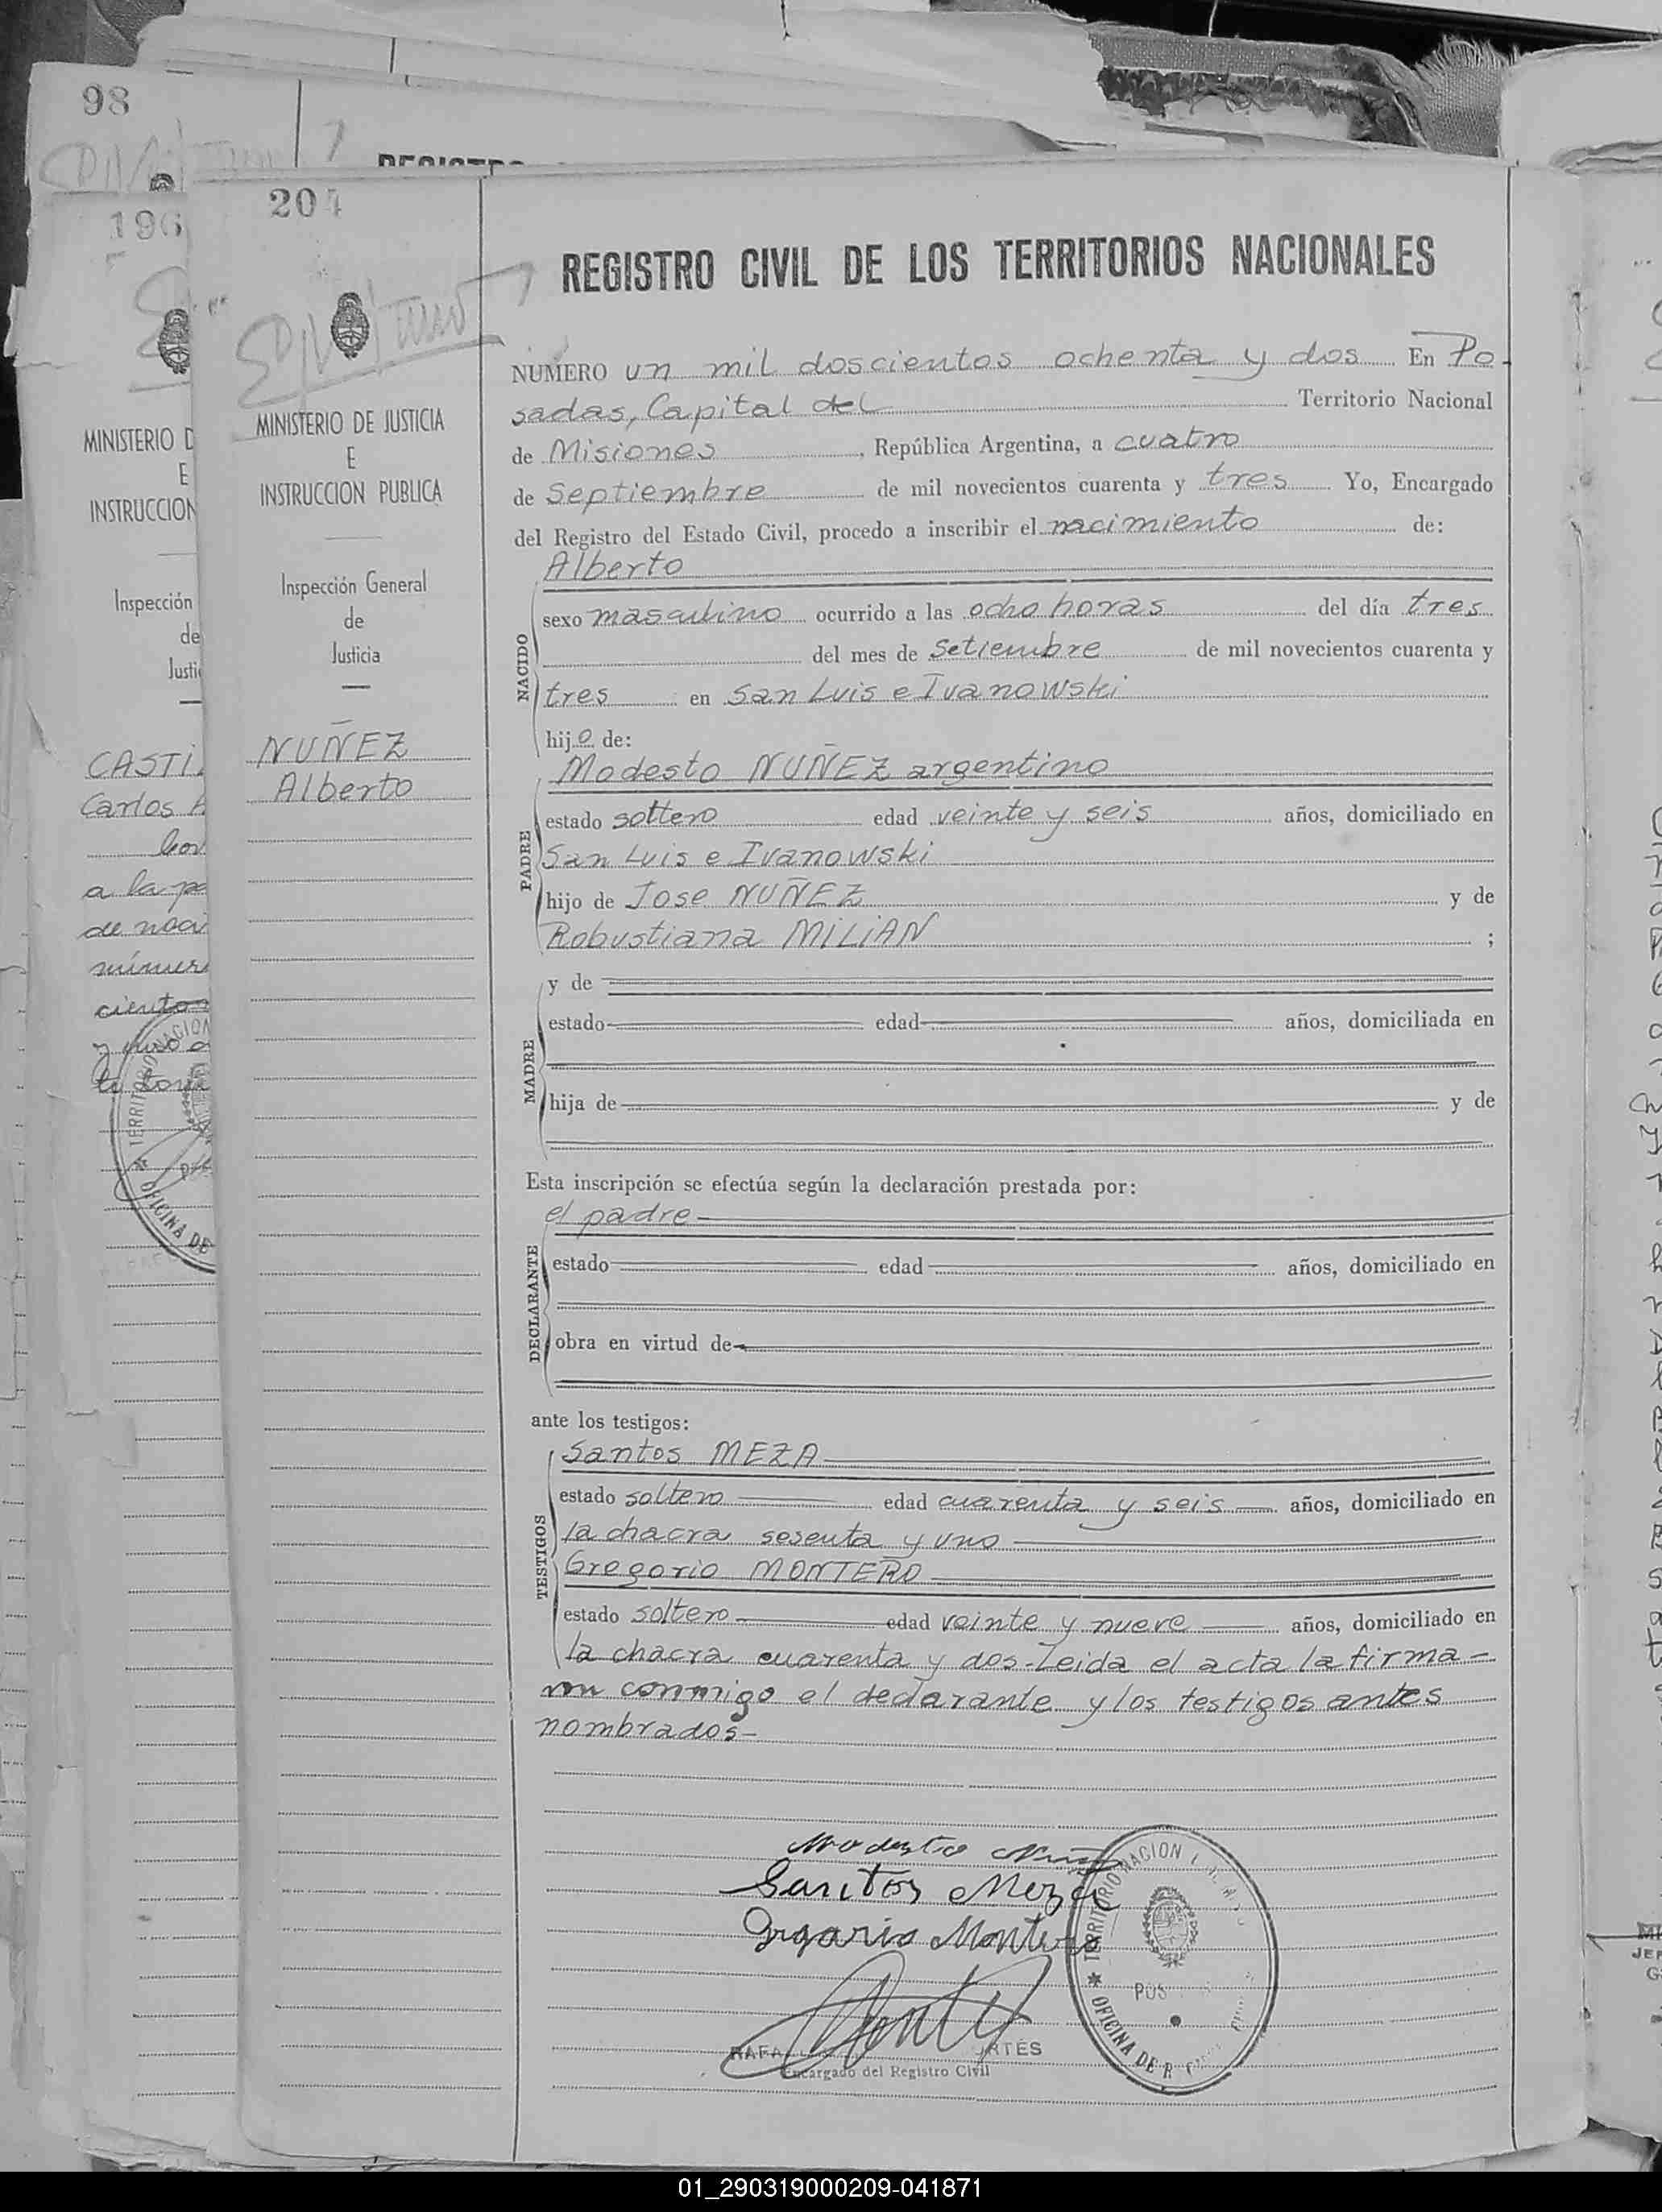 98
REGISTRO
196
MINISTERIO D
E
INSTRUCCION
Inspección
de
Justi
CASTI
Carlos A
a la pe
de naci
ciento
TERRITORIO NACION
OFICINA DE
204
MINISTERIO DE JUSTICIA
E
INSTRUCCION PUBLICA
Inspección General
de
Justicia
NUÑEZ
Alberto
REGISTRO CIVIL DE LOS TERRITORIOS NACIONALES
NUMERO un mil doscientos ochenta y dos En Po-
sadas, Capital del Territorio Nacional
de Misiones, República Argentina, a cuatro
de Septiembre de mil novecientos cuarenta y tres Yo, Encargado
del Registro del Estado Civil, procedo a inscribir el nacimiento de:
NACIDO
Alberto
sexo masculino ocurrido a las ocho horas del día tres
del mes de Setiembre de mil novecientos cuarenta y
tres en San Luis e Ivanowski
hijo de:
PADRE
Modesto NUÑEZ argentino
estado soltero edad veinte y seis años, domiciliado en
San Luis e Ivanowski
hijo de Jose NUÑEZ y de
Robustiana MILIAN ;
MADRE
y de
estado edad años, domiciliada en
hija de y de
Esta inscripción se efectúa según la declaración prestada por:
DECLARANTE
el padre
estado edad años, domiciliado en
obra en virtud de
ante los testigos:
TESTIGOS
Santos MEZA
estado soltero edad cuarenta y seis años, domiciliado en
la chacra sesenta y uno
Gregorio MONTERO
estado soltero edad veinte y nueve años, domiciliado en
la chacra cuarenta y dos-Leida el acta la firma-
nn conmigo el declarante y los testigos antes
nombrados-
Modesto Nuñez
Santos Meza
Grgorio Montero
TERRITORIO NACION
POS
OFICINA DE R
RAFA RTÉS
Encargado del Registro Civil
01_290319000209-041871